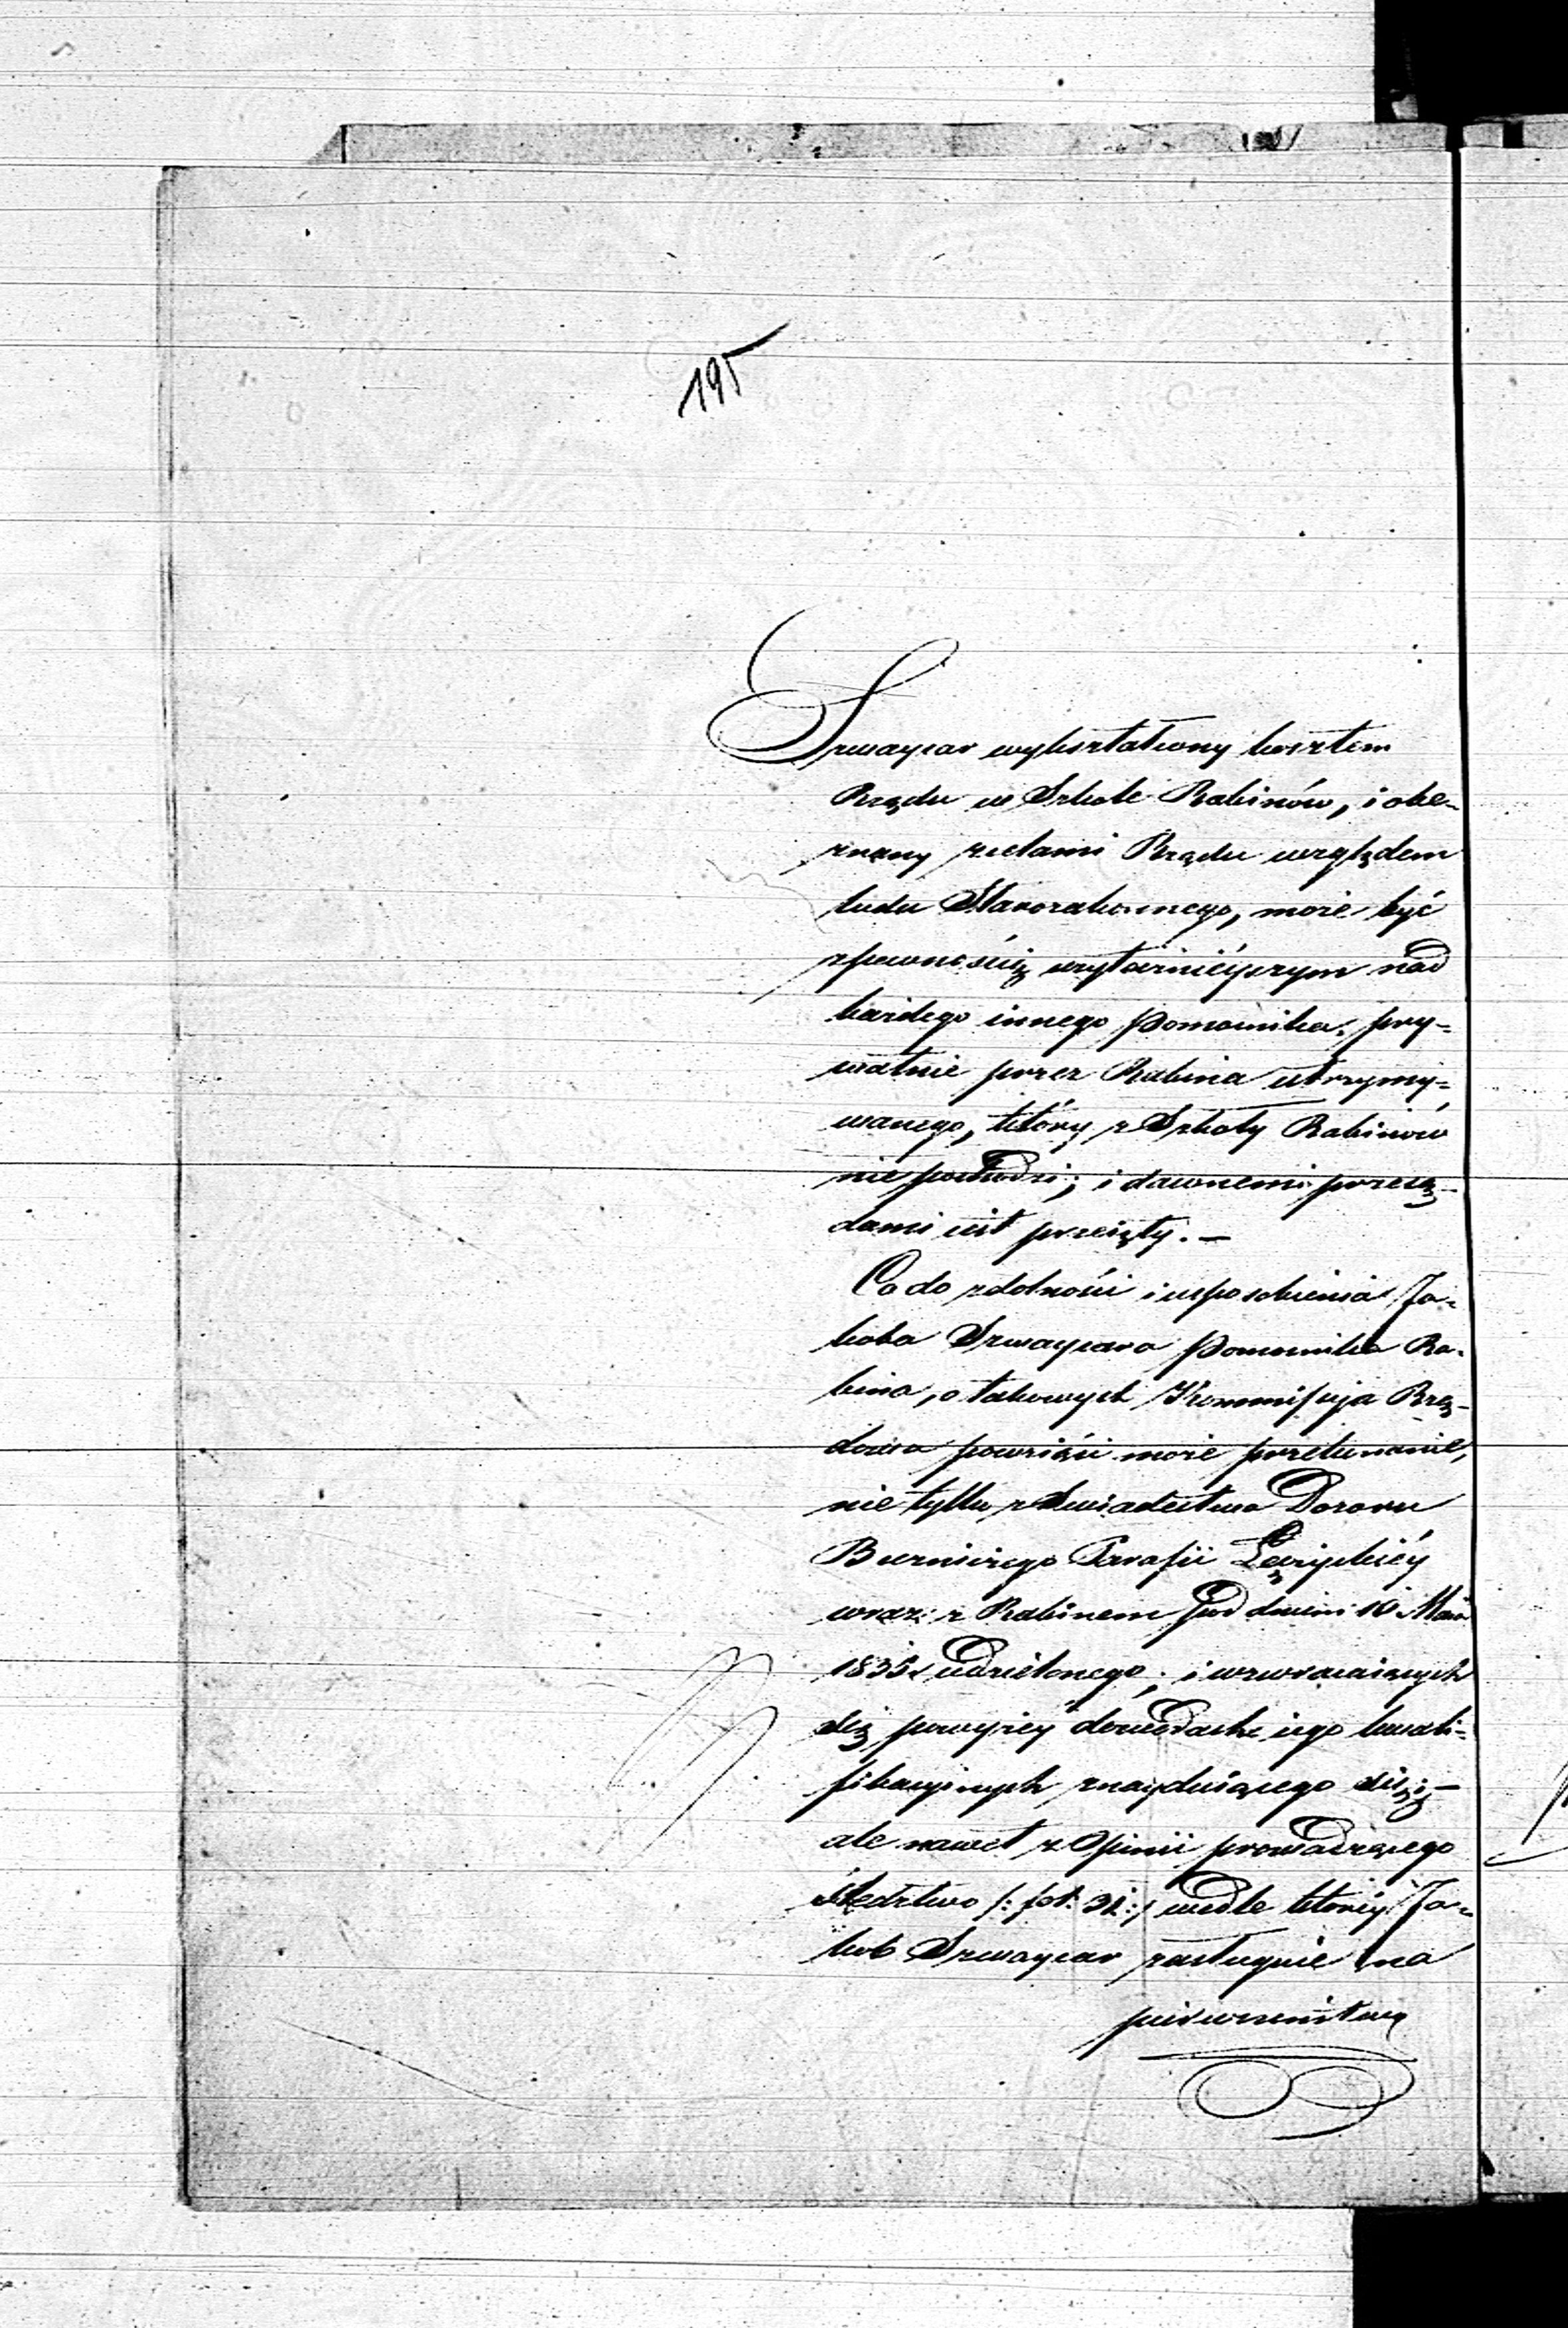 195
Szwaycar wykształcony kosztem
Rządu w Szkole Rabinów, i obe-
znany z celami Rządu względem
ludu Starozakonnego, może być
z pewnością użytecznieyszym nad
każdego innego Pomocnika, pry-
watnie przez Rabina utrzymy-
wanego, który z Szkoły Rabinów
nie pochodzi; i dawnemi przesą-
dami iest przeięty. —
Co do zdolności i usposobienia Ja-
koba Szwaycara Pomocnika Ra-
bina, o takowych Kommissyja Rzą-
dowa powziąść może przekonanie,
nie tylko z Świadectwa Dozoru
Bożniczego Parafii
wraz z Rabinem pod dniem 10 Maia
1835 r udzielonego; i w zwracaiących
się powyżey dowodach iego kwali-
fikacyinych znayduiącego się; —
ale nawet z Opinii prowadzącego
śledztwo /: fol: 31:/ wedle którey Ja-
kob Szwaycar zasługuie na
pierwszeństwo